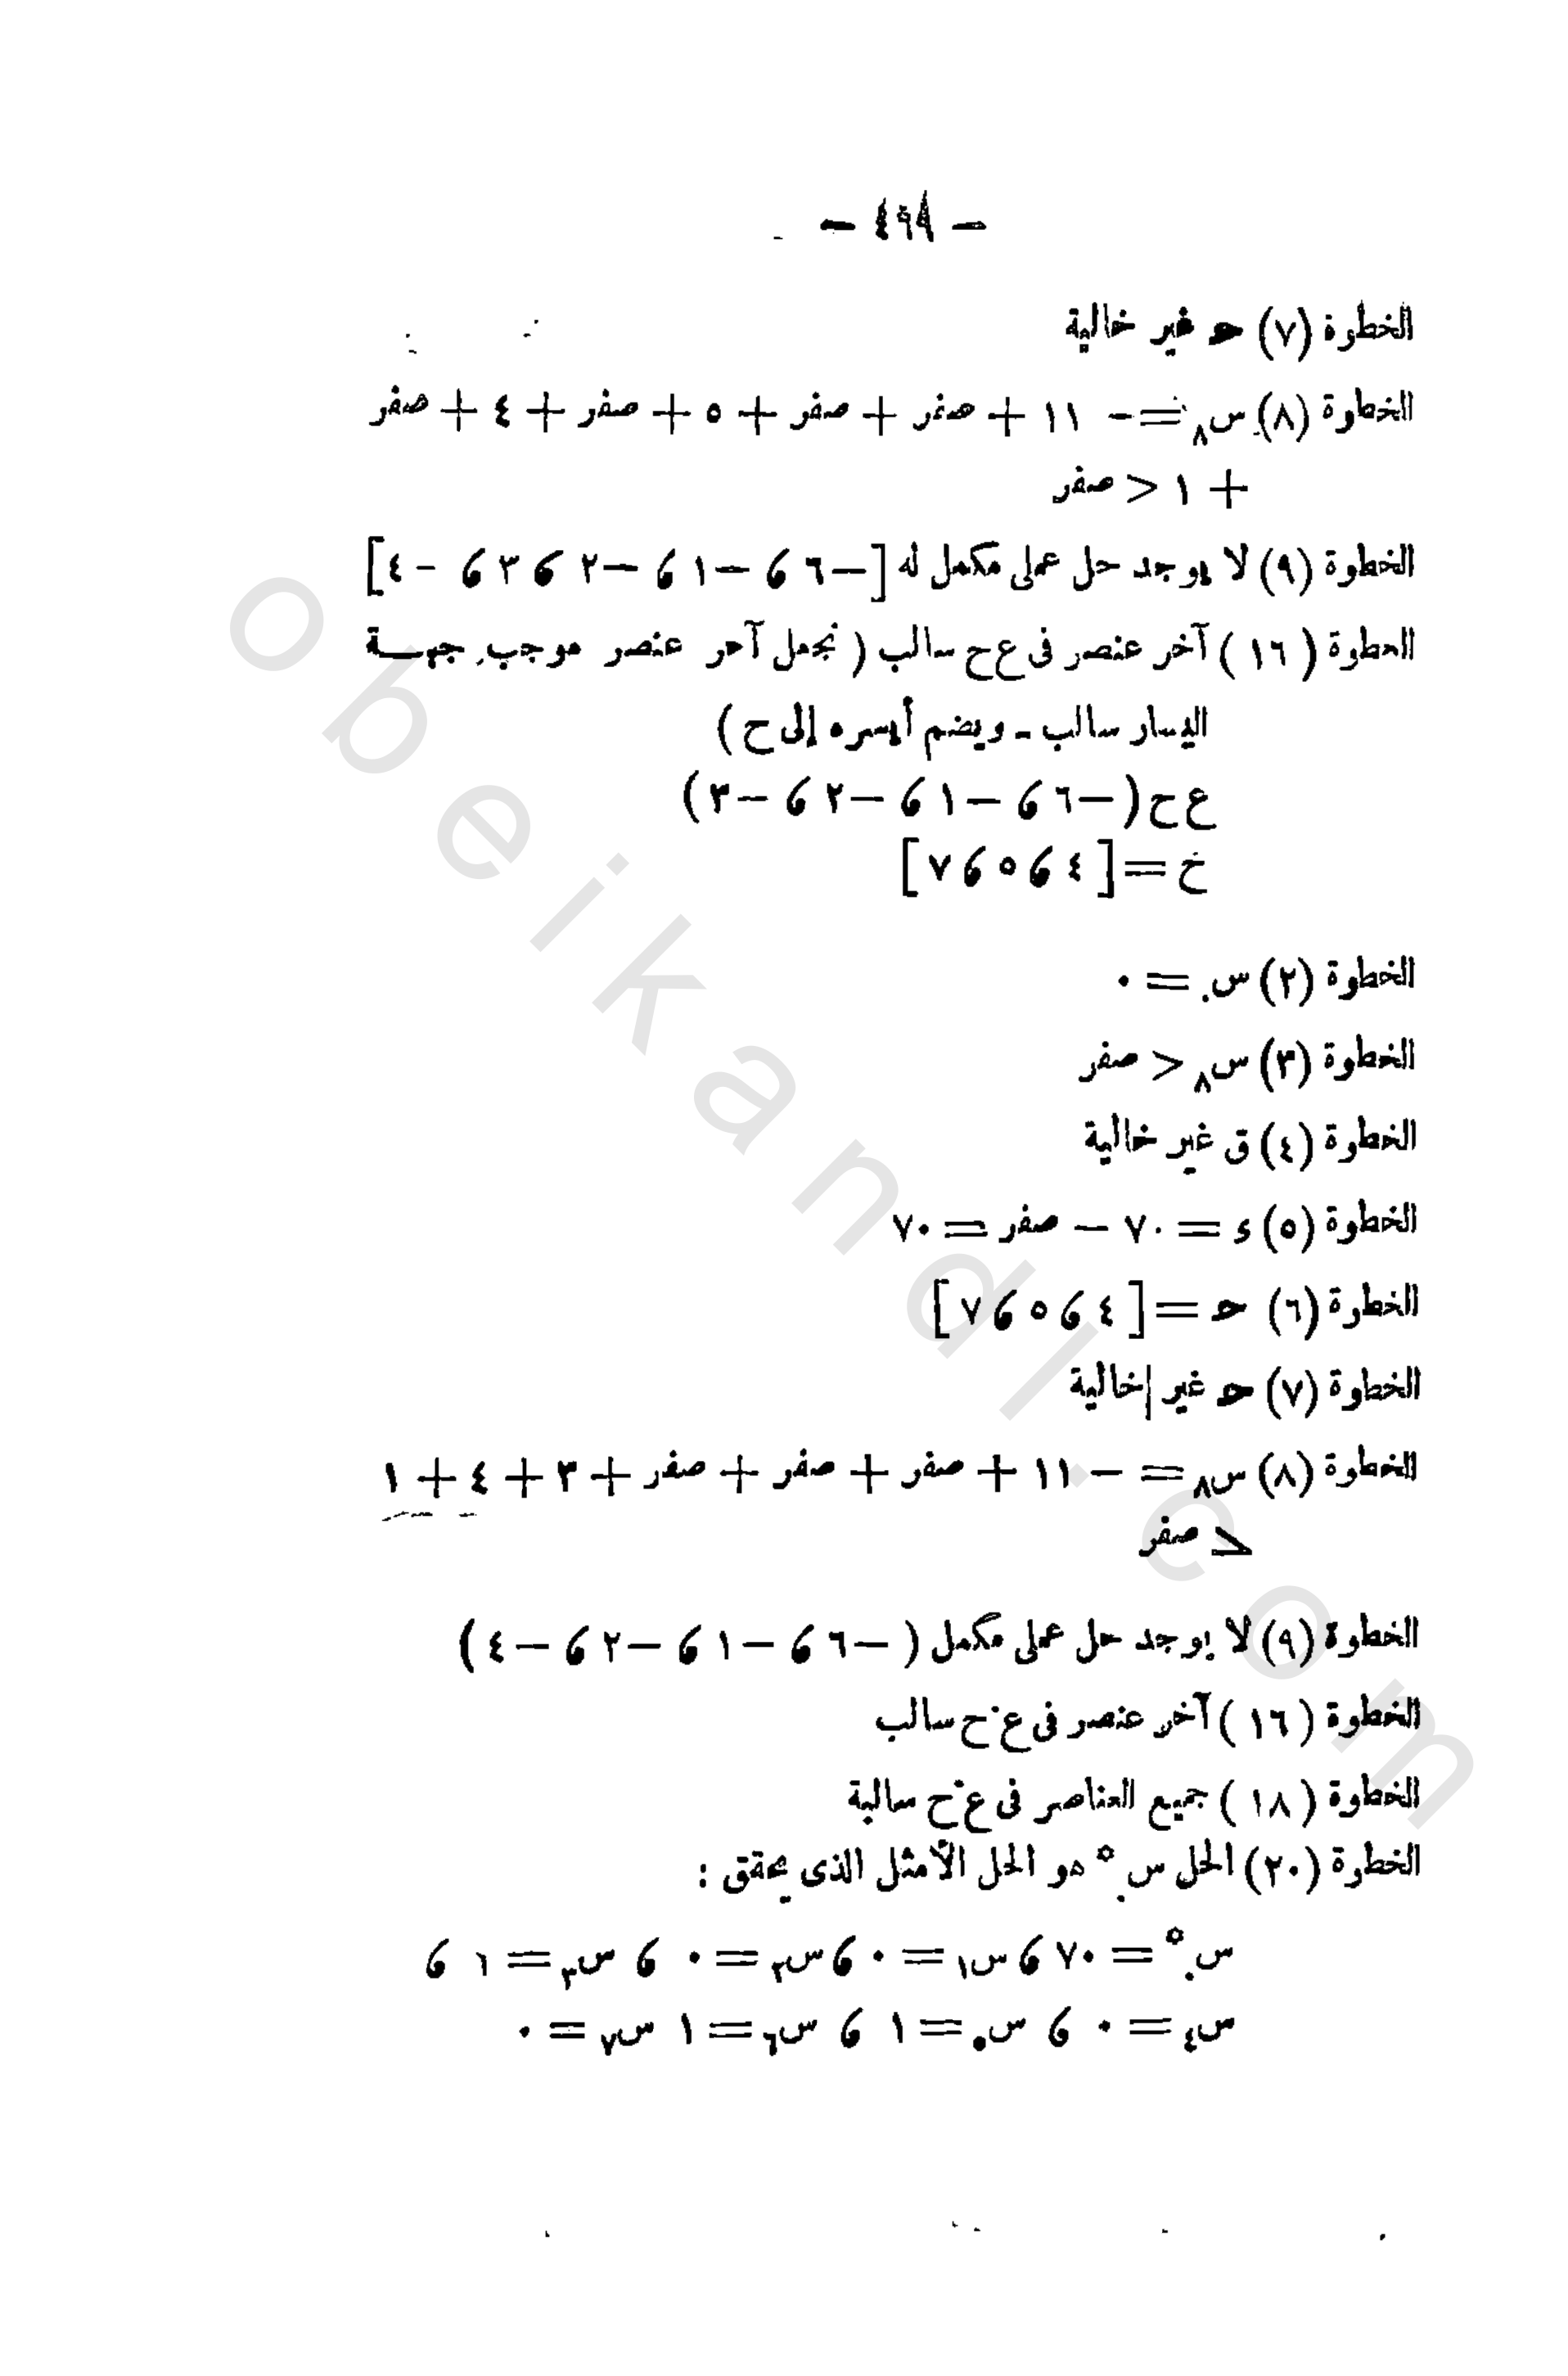 — ٤٩٨ —
الخطوة (٧) حـ غير خالية
الخطوة (٨) س٨ = - ١١ + صفر + صفر + ٥ + صفر + ٤ + صفر
+ ١ < صفر
الخطوة (٩) لا يوجد حل عملى مكمل له [—٦ ، —١ ، —٢ ، ٣ ، -٤]
الخطوة (١٦) آخر عنصر فى ع ح سالب ( نجعل آخر عنصر موجب جهة
اليسار سالب - ويضم أيسره إلى ح )
ع ح (—٦ ، —١ ، —٢ ، —٣)
خ = [٤ ، ٥ ، ٧]
الخطوة (٢) س. = ٠
الخطوة (٣) س٨ < صفر
الخطوة (٤) ق غير خالية
الخطوة (٥) ء = ٧٠ — صفر = ٧٠
الخطوة (٦) حـ = [٤ ، ٥ ، ٧]
الخطوة (٧) حـ غير خالية
الخطوة (٨) س٨ = — ١١ + صفر + صفر + صفر + ٣ + ٤ + ١
≤ صفر
الخطوة (٩) لا يوجد حل عملى مكمل ( —٦ ، —١ ، —٢ ، —٤ )
الخطوة (١٦) آخر عنصر فى ع ح سالب
الخطوة (١٨) جميع العناصر فى ع ح سالبة
الخطوة (٢٠) الحل س.* هو الحل الأمثل الذى يحقق :
س.* = ٧٠ ، س١ = ٠ ، س٢ = ٠ ، س٣ = ١ ،
س٤ = ٠ ، س٥ = ١ ، س٦ = ١ س٧ = ٠
obeikandl.com